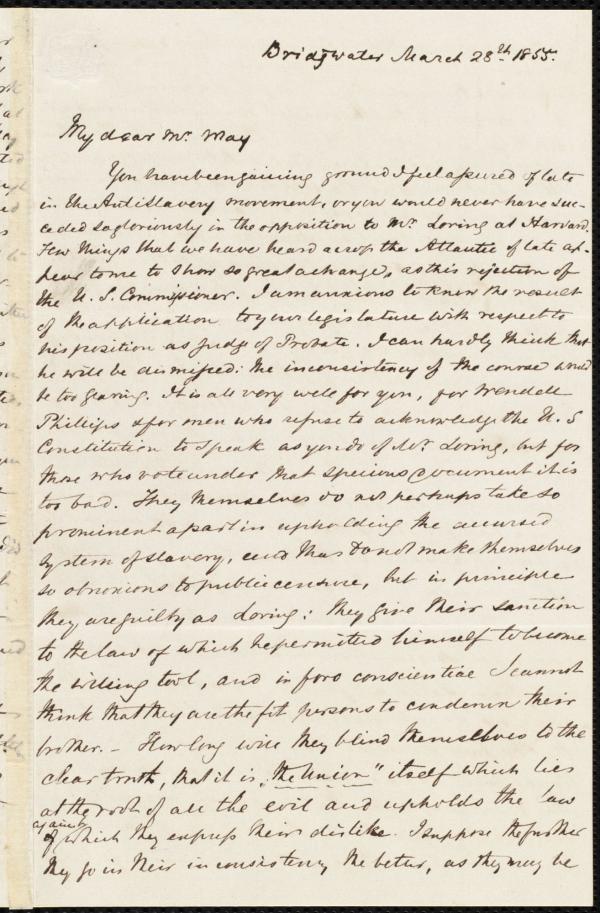 Bridgwater March 28th 1855.
My dear Mr. May
You have been gaining ground I feel assured of late
in the Antislavery movement, or you would never have suc-
ceded so gloriously in the opposition to Mr. Loring at Harvard.
Few things that we have heard across the Atlantic of late ap-
pear to me to show so great a change, as this rejection of
the U. S. Commissioner. I am anxious to know the result
of the application to your legislature with respect to
his position as Judge of Probate. I can hardly think that
he will be dismissed: the inconsistency of the course would
be too glaring. It is all very well for you, for Wendell
Phillips & for men who refuse to acknowledge the U. S
Constitution to speak as you do of Mr. Loring, but for
those who vote under that specious document it is
too bad. They themselves do not perhaps take so
prominent a part in upholding the accursed
system of slavery, and thus do not make themselves
so obnoxious to public censure, but in principle
they are guilty as Loring: they give their sanction
to the law of which he permitted himself to become
the willing tool, and in foro conscientiae I cannot
think that they are the fit persons to condemn their
brother. - How long will they blind themselves to the
clear truth, that it is "the Union" itself which lies
at the root of all the evil and upholds the law
against which they express their dislike. I suppose the further
they go in their inconsistency the better, as they may be